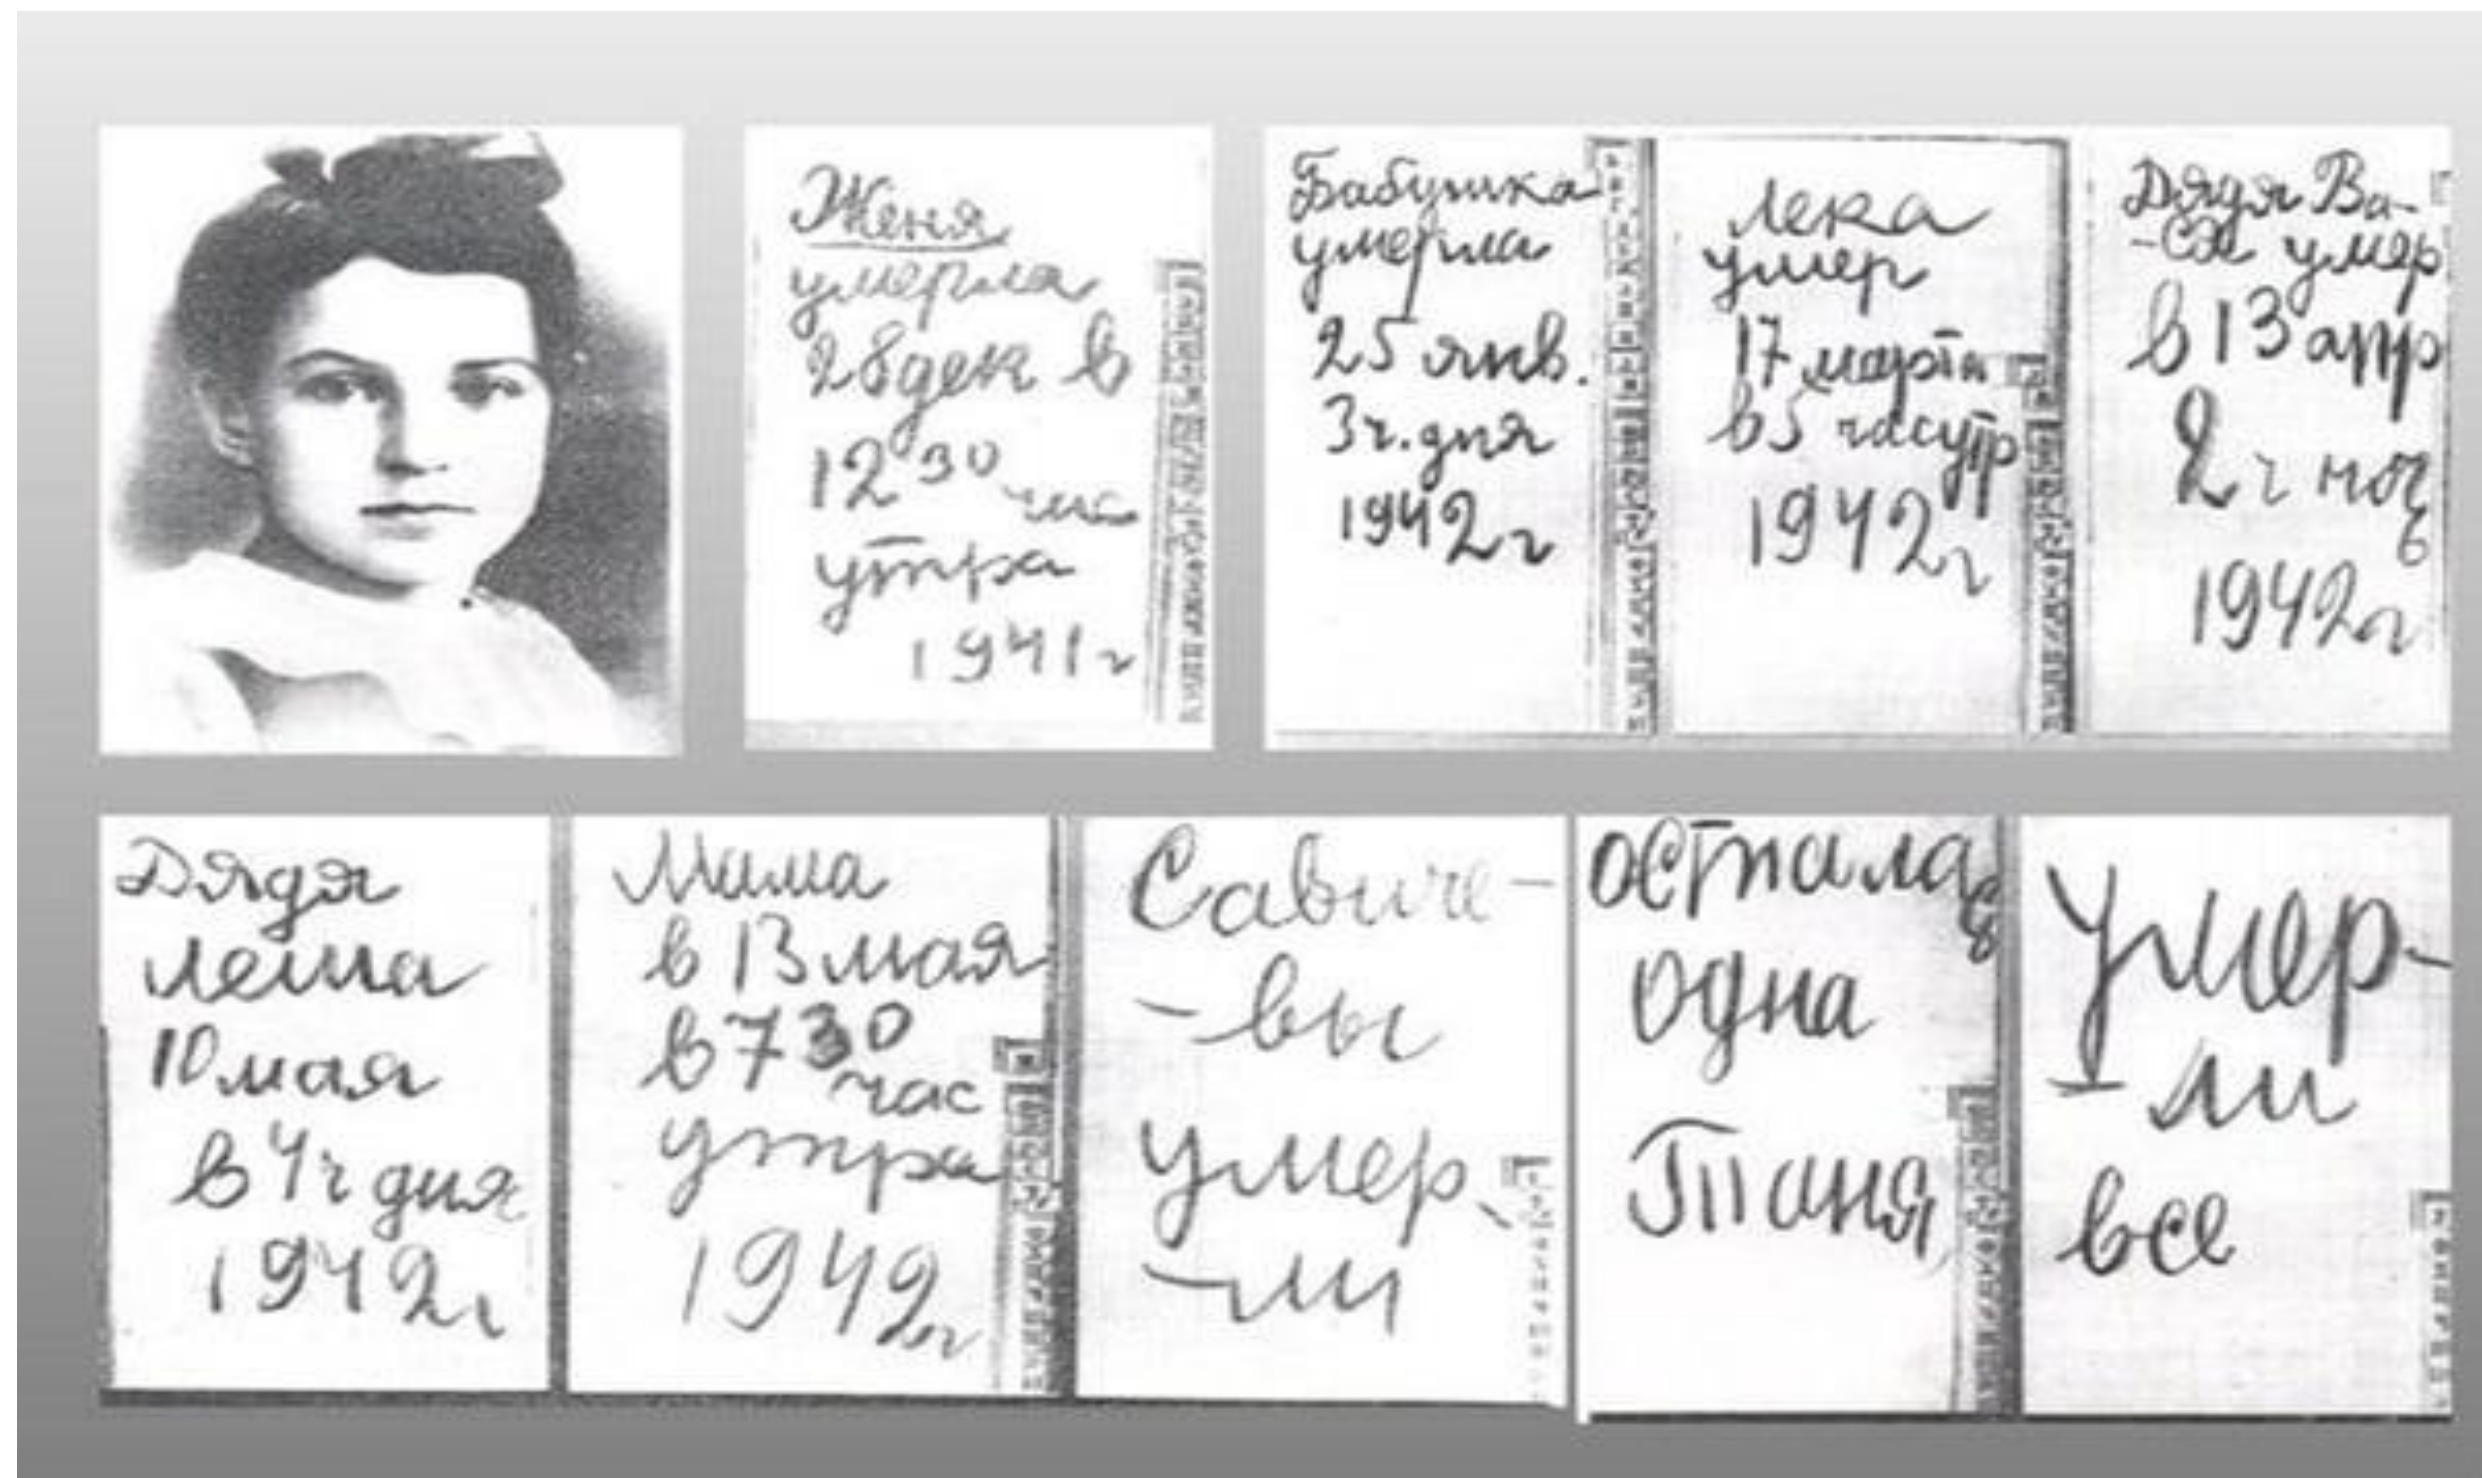 Женя
умерла
28 дек в
12 30
час
утра
1941 г
Бабушка
умерла
25 янв.
3 ч. дня
1942 г
Лека
умер
17 марта
в 5 часутр
1942 г
Дядя Ва-
-ся умер
в 13 апр
2 ч ночь
1942 г
Дядя
Леша
10 мая
в 4 ч дня
1942 г
Мама
в 13 мая
в 7 30
час
утра
1942 г
Савиче-
-вы
умер
-ли
осталась
одна
Таня
Умер-
-ли
все